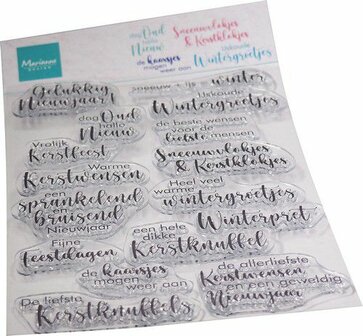 Marianne
DESIGN
dag Oud
hallo
Nieuw
de kaarsjes
mogen
weer aan
Sneeuwvlokjes
& Kerstklokjes
IJskoude
Wintergroetjes
Gelukkig
Nieuwjaar
dag Oud
hallo
Nieuw
Vrolijk
Kerstfeest
Warme
Kerstwensen
een
sprankelend
en
bruisend
Nieuwjaar
Fijne
feestdagen
de kaarsjes
mogen
weer aan
De liefste
Kerstknuffels
winter
IJskoude
Wintergroetjes
de beste wensen
voor de
liefste mensen
Sneeuwvlokjes
& Kerstklokjes
Heel veel
warme
wintergroetjes
Winterpret
een hele
dikke
Kerstknuffel
de allerliefste
Kerstwensen
en een geweldig
Nieuwjaar